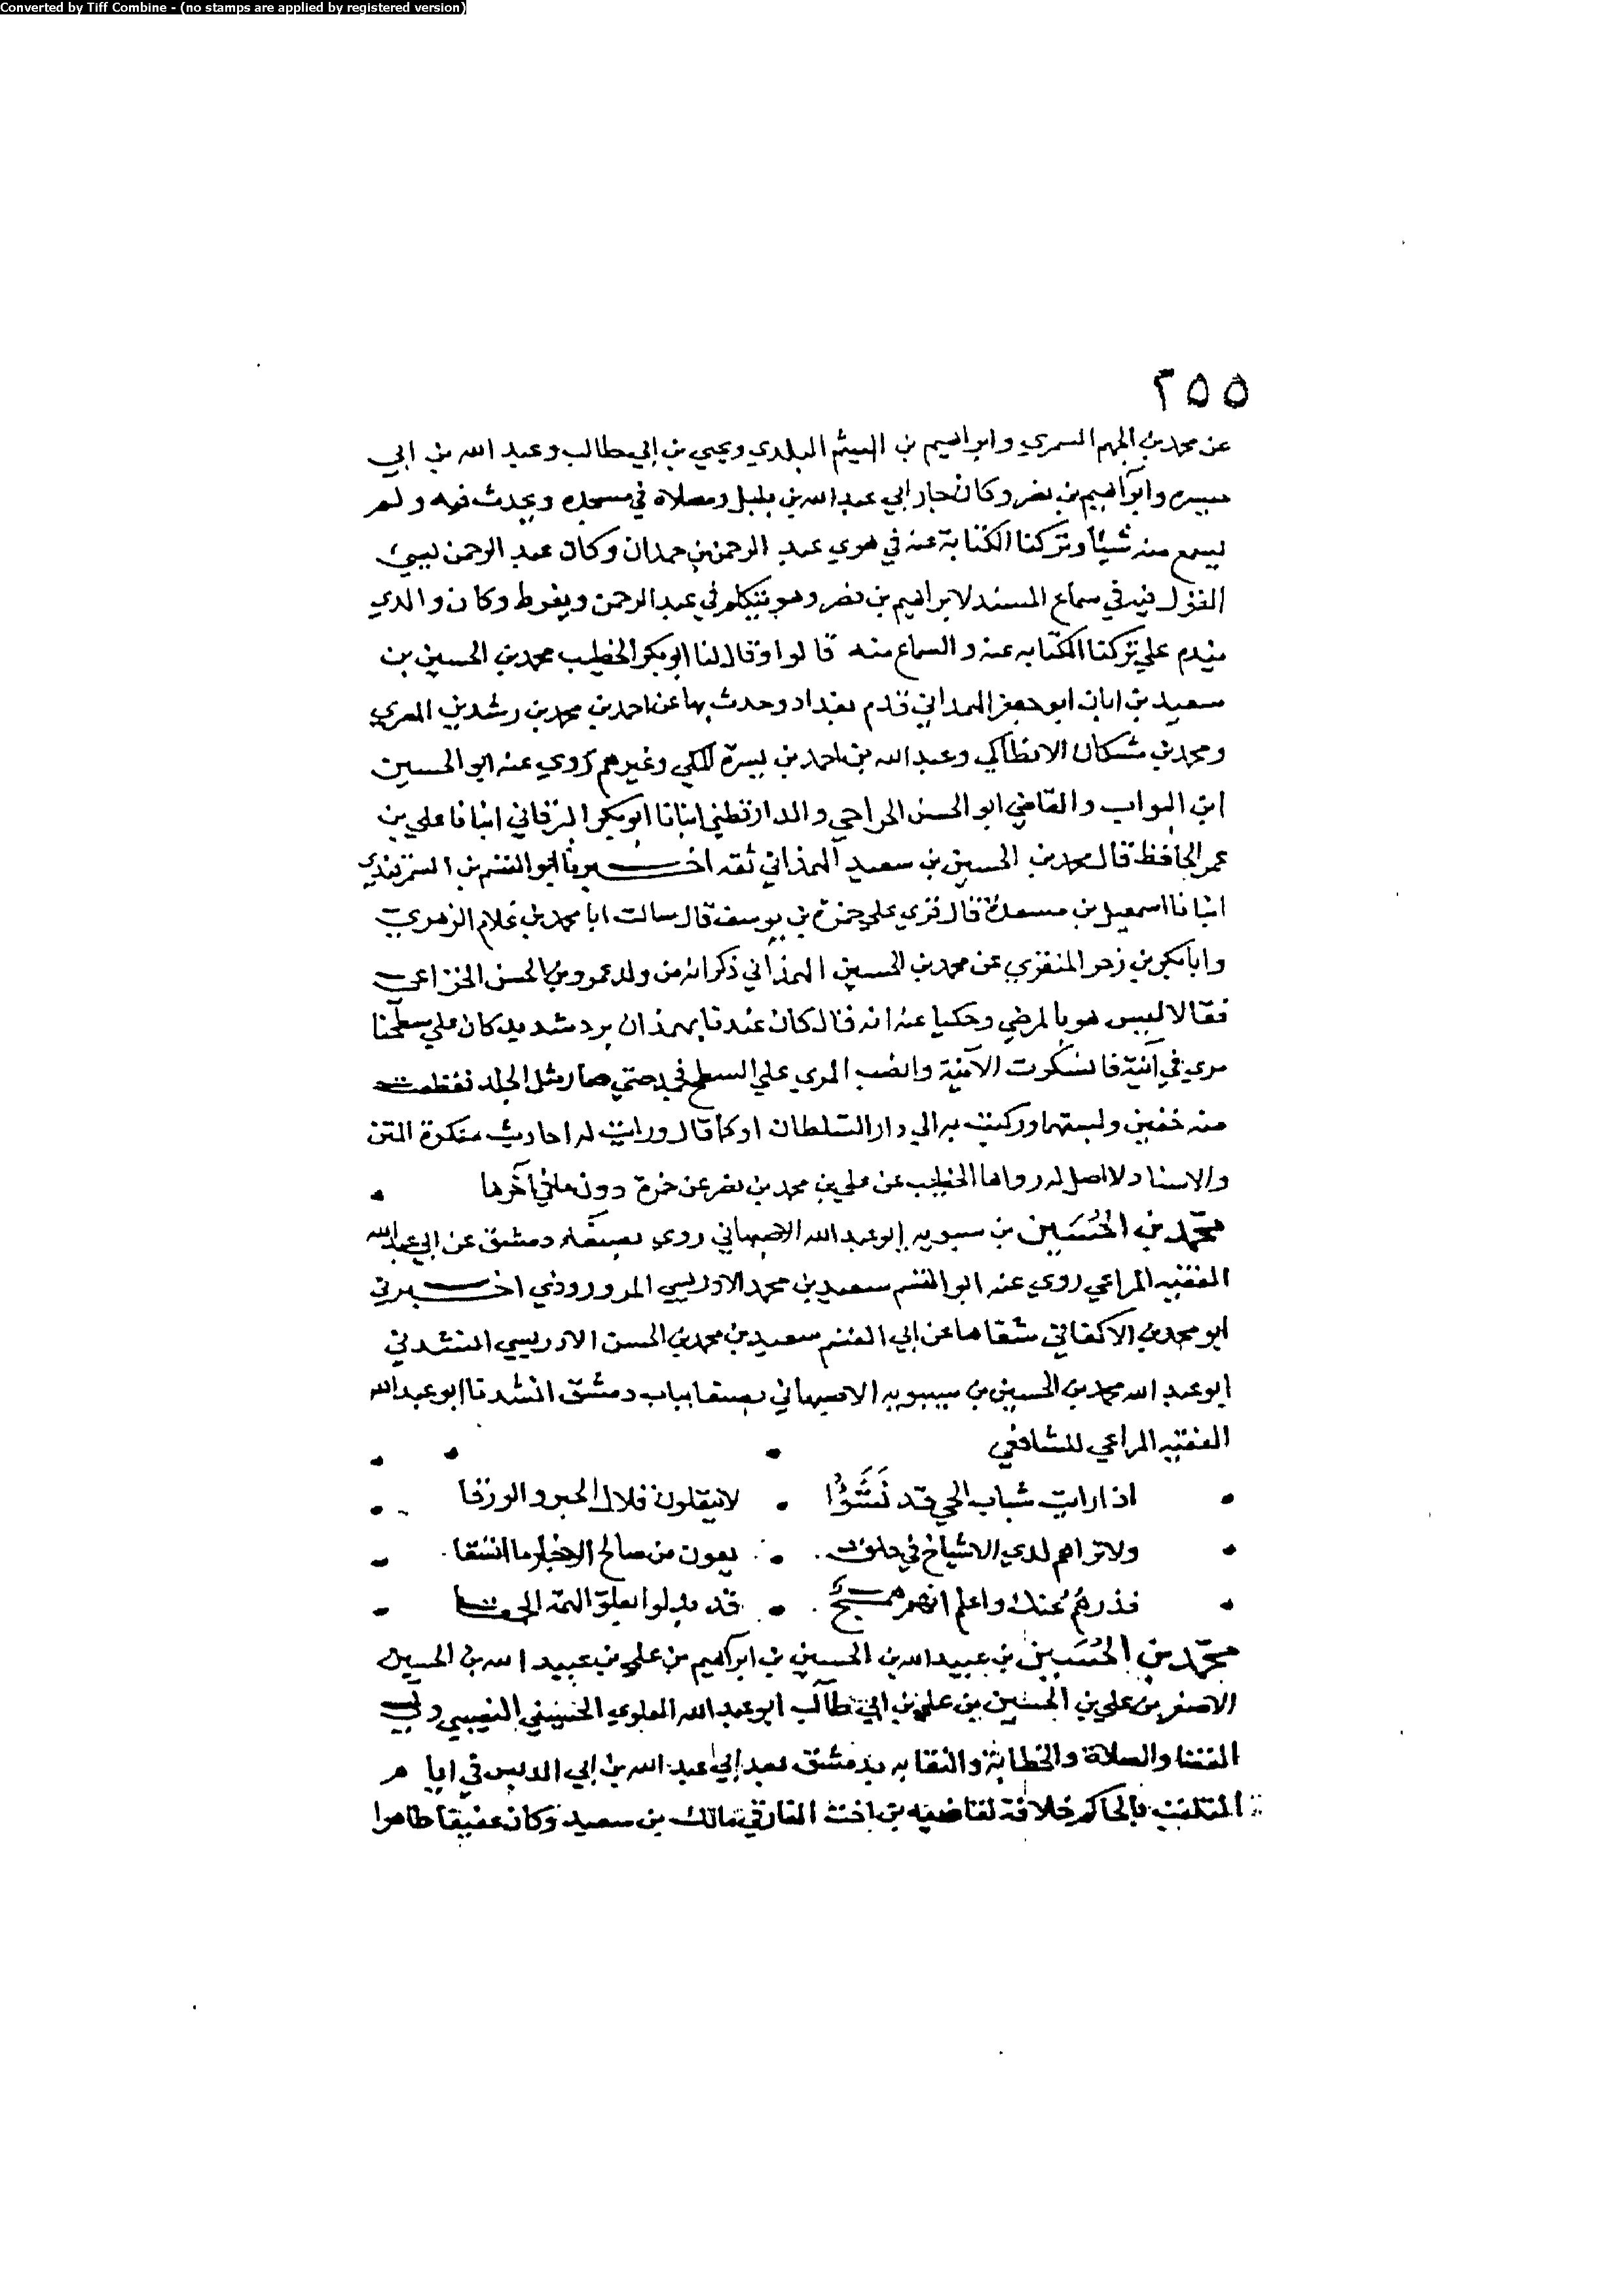 Converted by Tiff Combine - (no stamps are applied by registered version)
٢٥٥
عن محمد بن الجهم السمري وابراهيم بن الهيثم البلدي ويحيي بن ابي طالب وعبد الله بن ابي
وابراهيم بن نصر وكان جار ابي عبد الله بن بلبل ومصلاه في مسجده ويحدث فيه ولم
يسمع منه شيئا وتركنا الكتابة عنه في هوي عبد الرحمن بن حمدان وكان عبد الرحمن يسيئ
القول فيه في سماع المسند لابراهيم بن نصر وهو يتكلم في عبد الرحمن ويفرط وكان والدي
يندم علي تركنا الكتابه عنه والسماع منه قالوا وقال لنا ابو بكر الخطيب محمد بن الحسين بن
سعيد بن ابان ابو جعفر الهمداني قدم بغداد وحدث بها عن احمد بن محمد بن رشدين المصري
ومحمد بن مشكان الانطاكي وعبد الله بن احمد بن ميسرة المكي وغيرهم روي عنه ابو الحسين
ابن البواب والقاضي ابو الحسن الجراحي والدارقطني انبانا ابو بكر البرقاني انبانا علي بن
عمر الحافظ قال محمد بن الحسين بن سعيد الهمذاني ثقه اخبرنا ابو القسم بن السمرقندي
انبانا اسمعيل بن مسعدة قال قري علي حمزة بن يوسف قال سالت ابا محمد بن غلام الزهري
وابا بكر بن زحر المنقري عن محمد بن الحسين الهمذاني ذكر انه من ولد عمرو بن الحسن الخزاعي
فقالا ليس هو بالمرضي وحكيا عنه انه قال كان عندنا بهمذان برد شديد كان علي سطحنا
مري في آنية فانكسرت الآنية وانصب المري علي السطح فجمد حتي صار مثل الجلد فقطعت
منه خفين ولبستهما وركبت به الي دار السلطان او كما قال ورايت له احاديث منكرة المتن
والاسناد لا اصل له رواها الخطيب عن علي بن محمد بن نصر عن حمزة دون ما في آخرها
محمد بن الحُسَين بن سبويه ابو عبد الله الاصبهاني روي بصنعاء دمشق عن ابي عبد الله
الفقيه المراعي روي عنه ابو القسم سعيد بن محمد الادريسي المروروذي اخبرني
ابو محمد بن الاكفاني شفاها عن ابي القسم سعيد بن محمد بن الحسن الادريسي انشدني
ابو عبد الله محمد بن الحسين بن سيبويه الاصبهاني بصنعا بباب دمشق انشدنا ابو عبد الله
الفقيه المراعي للشافعي
اذا رايت شباب الحي قد نَشَؤُا لا ينقلون قلال الحبر والورقا
ولا تراهم لدي الاشياخ في حلق يعون من صالح الاخبار ما اتسقا
فذرهم عنك واعلم انهم همج قد بدلوا بعلو الهمة الحمقا
محمد بن الحُسَين بن عبيد الله بن الحسين بن ابراهيم بن علي بن عبيد الله بن الحسين
الاصغر بن علي بن الحسين بن علي بن ابي طالب ابو عبد الله العلوي الحسيني النصيبي ولي
القضا والصلاة والخطابة والنقابه بدمشق بعد ابي عبد الله بن ابي الدبس في ايام
المتلقب بالحاكم خلافة لقاضيه بن اخت الفارقي مالك بن سعيد وكان عفيفا طاهرا